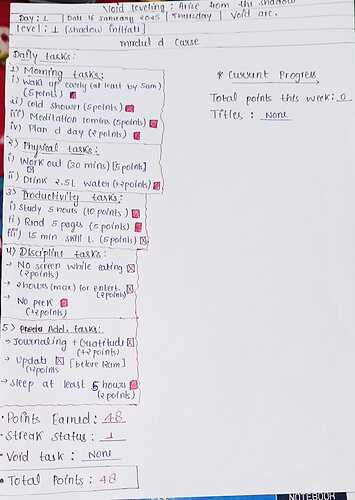 Void leveling: Arise from the shadow
Day: 1 | Date 16 January 2025 | Thursday | Void arc.
Level: 1 [Shadow Initiate]
Daily tasks:
* Current Progress
Total points this week: 0
Titles: None
1) Morning tasks:
i) Wake up early (at least by 5am)
(5 points)
ii) Cold shower (5 points)
iii) Meditation 10mins (5 points)
iv) Plan d day (2 points)
2) Physical tasks:
i) Work out (30 mins) [5 points]
ii) Drink 2.5L water (+2 points)
3) Productivity tasks:
i) Study 5 hours (10 points)
ii) Read 5 pages (5 points)
iii) 15 min skill L. (5 points)
4) Discipline tasks:
→ No screen while eating
(2 points)
→ 2 hours (max) for entert.
(2 points)
→ No
(+2 points)
5) Add. tasks:
→ Journaling + Gratitude
(+2 points)
→ Update [before 10am]
(+2 points)
→ Sleep at least 5 hours
(2 points)
• Points Earned: 48
• Streak Status: 1
• Void task: None
• Total Points: 48
NOTEBOOK